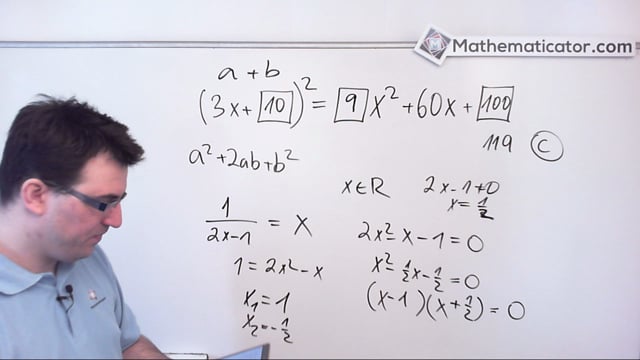 Mathematicator.com
a + b
(3x + 10)² = 9x² + 60x + 100
119 C
a² + 2ab + b²
x ∈ R 2x - 1 ≠ 0
x = 1/2
1/(2x-1) = x
2x² - x - 1 = 0
1 = 2x² - x
x² - 1/2x - 1/2 = 0
x₁ = 1
(x-1)(x+1/2) = 0
x₂ = -1/2